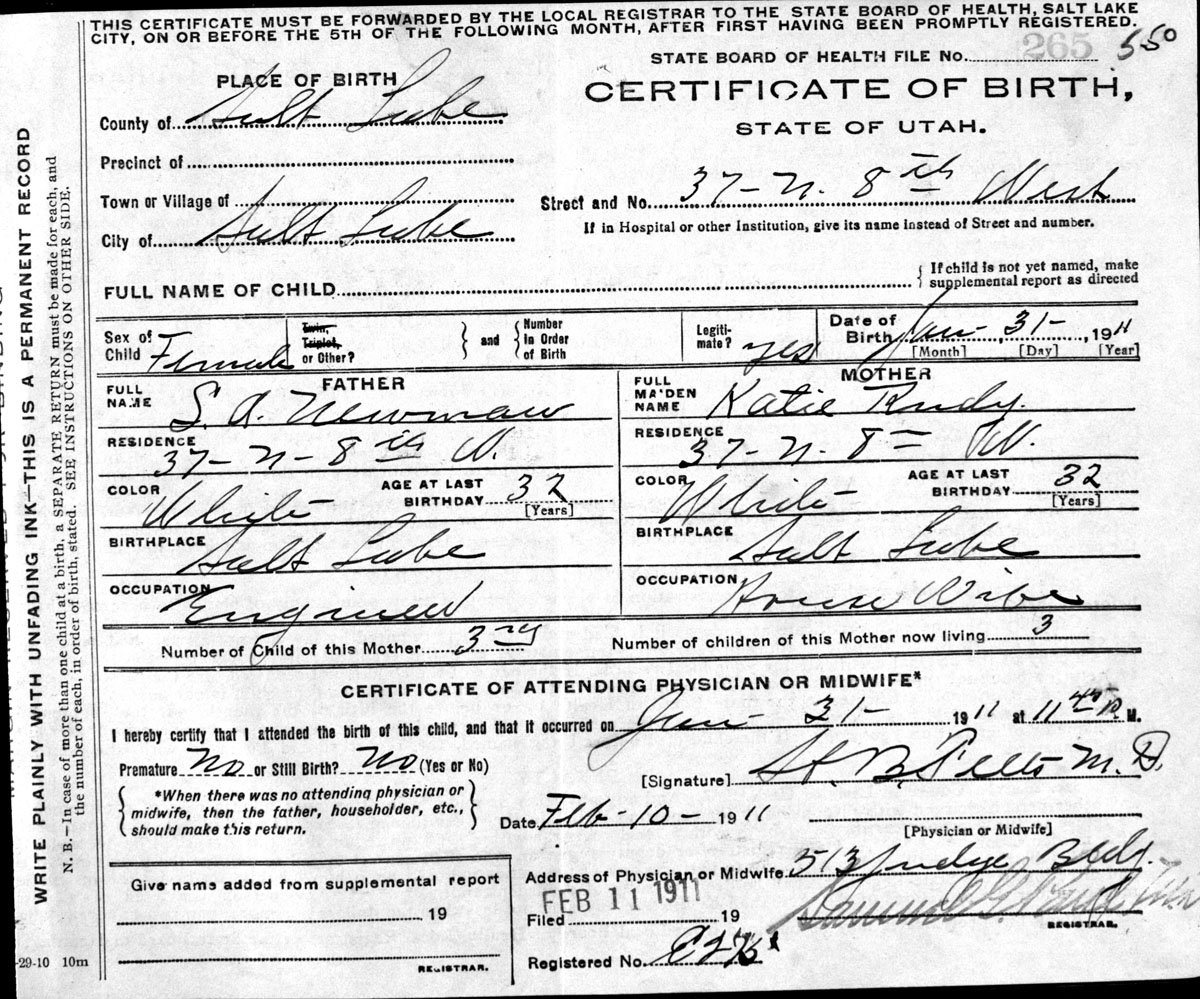 THIS CERTIFICATE MUST BE FORWARDED BY THE LOCAL REGISTRAR TO THE STATE BOARD OF HEALTH, SALT LAKE
CITY, ON OR BEFORE THE 5TH OF THE FOLLOWING MONTH, AFTER FIRST HAVING BEEN PROMPTLY REGISTERED.
STATE BOARD OF HEALTH FILE No. 265 550
PLACE OF BIRTH
CERTIFICATE OF BIRTH,
STATE OF UTAH.
County of Salt Lake
Precinct of
Town or Village of
Street and No. 37-N. 8th West
City of Salt Lake
If in Hospital or other Institution, give its name instead of Street and number.
FULL NAME OF CHILD
{ If child is not yet named, make
supplemental report as directed
Sex of Child Female
Twin, Triplet, or Other?
} and { Number In Order of Birth
Legitimate? yes
Date of Birth Jan- 31-, 1911
[Month] [Day] [Year]
FATHER
MOTHER
FULL NAME S. A. Newman
FULL MAIDEN NAME Katie Rudy.
RESIDENCE 37-N-8th W.
RESIDENCE 37-N. 8= W.
COLOR White
AGE AT LAST BIRTHDAY 32 [Years]
COLOR White
AGE AT LAST BIRTHDAY 32 [Years]
BIRTHPLACE Salt Lake
BIRTHPLACE Salt Lake
OCCUPATION Engineer
OCCUPATION House Wife
Number of Child of this Mother 3rd
Number of children of this Mother now living 3
CERTIFICATE OF ATTENDING PHYSICIAN OR MIDWIFE*
I hereby certify that I attended the birth of this child, and that it occurred on Jan- 31- 1911 at 11 M.
Premature No or Still Birth? No (Yes or No)
[Signature] M. D.
*When there was no attending physician or
midwife, then the father, householder, etc.,
should make this return.
Date Feb-10- 1911
[Physician or Midwife]
Address of Physician or Midwife 513 Judge Bldg.
Give name added from supplemental report
19
REGISTRAR.
FEB 11 1911
Filed 19
REGISTRAR.
Registered No.
-29-10 10m
WRITE PLAINLY WITH UNFADING INK—THIS IS A PERMANENT RECORD
N. B.—In case of more than one child at a birth, a SEPARATE RETURN must be made for each, and
the number of each, in order of birth, stated. SEE INSTRUCTIONS ON OTHER SIDE.